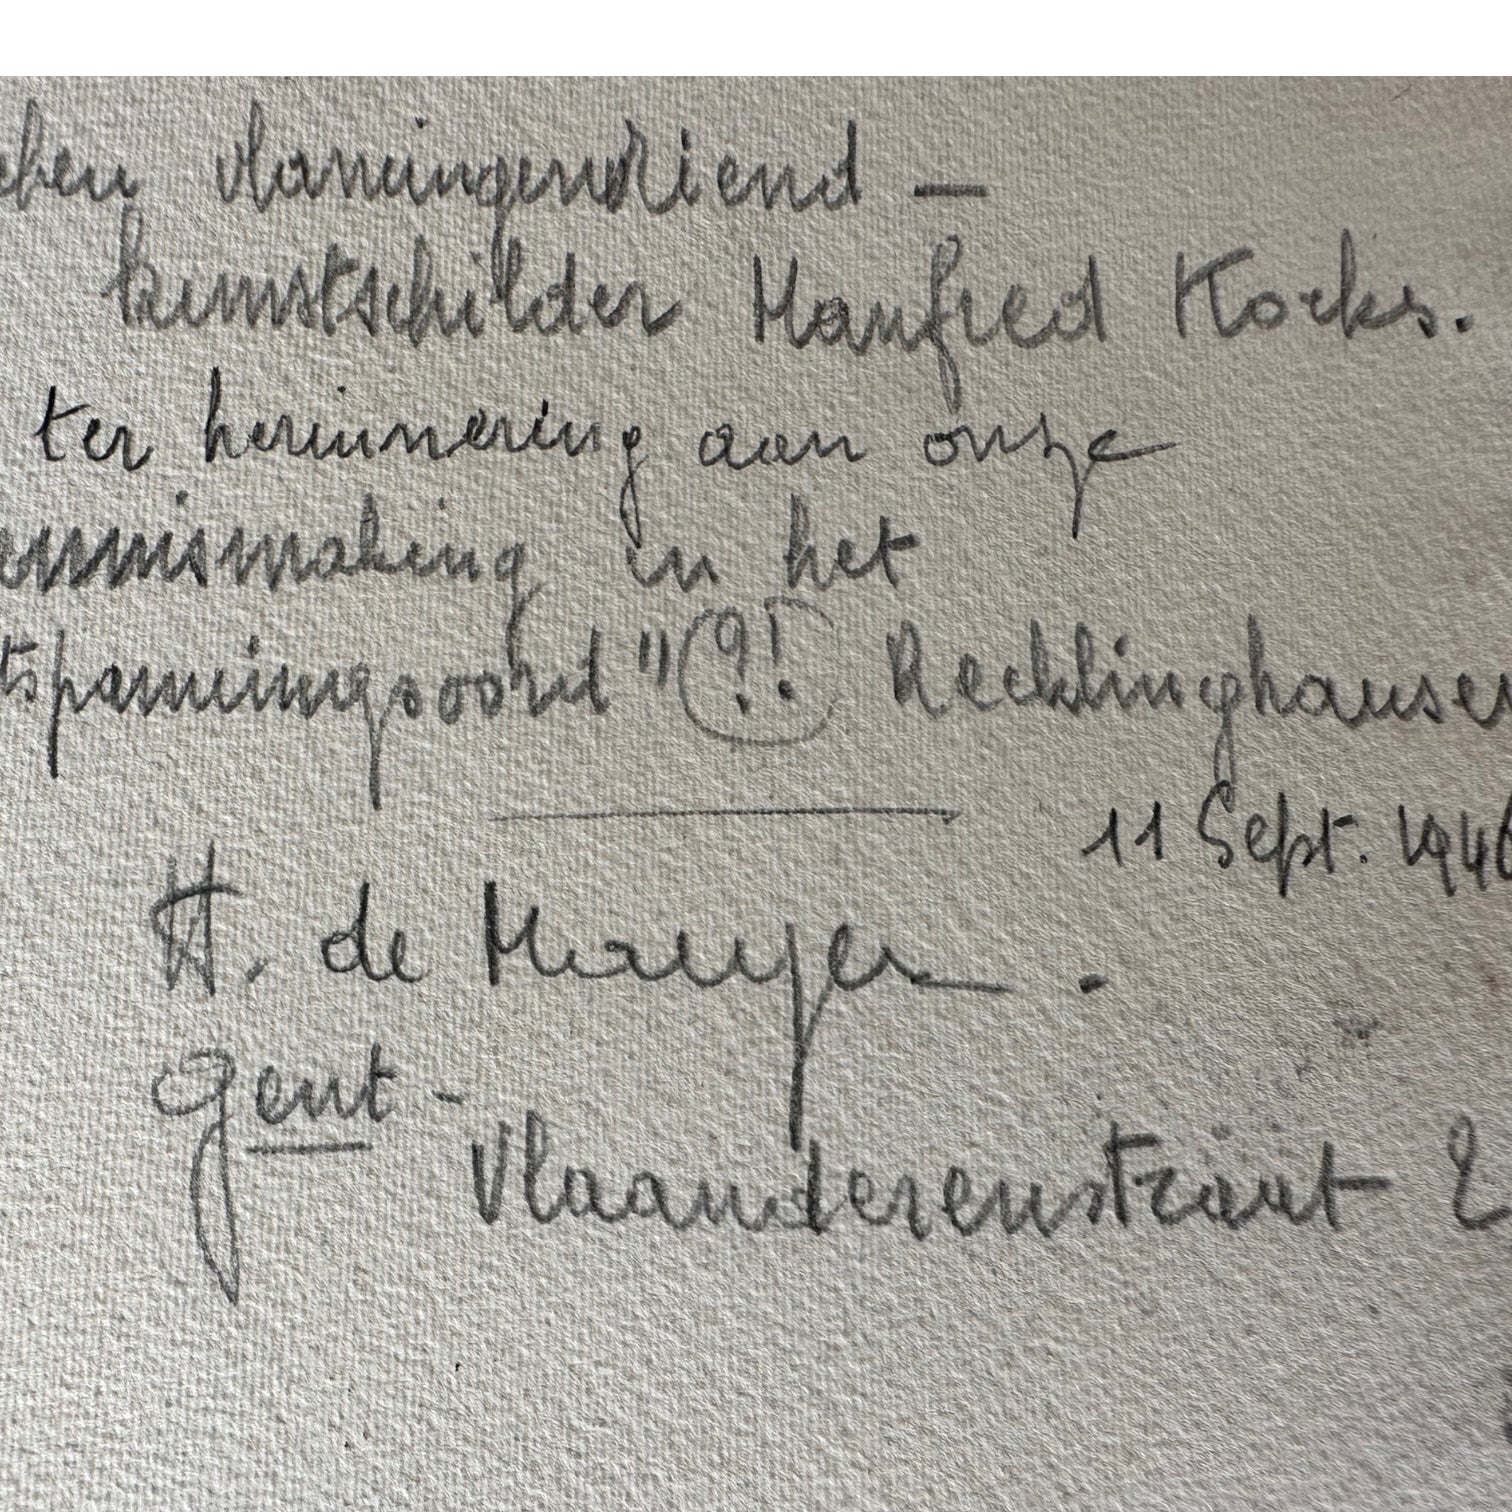 vlamingenvriend —
kunstschilder Manfred Kocks.
ter herinnering aan onze
ennismaking in het
tspanningsoord " ?! Recklinghausen
11 Sept. 1946
H. de Mauyer.
Gent -
Vlaanderenstraat 2